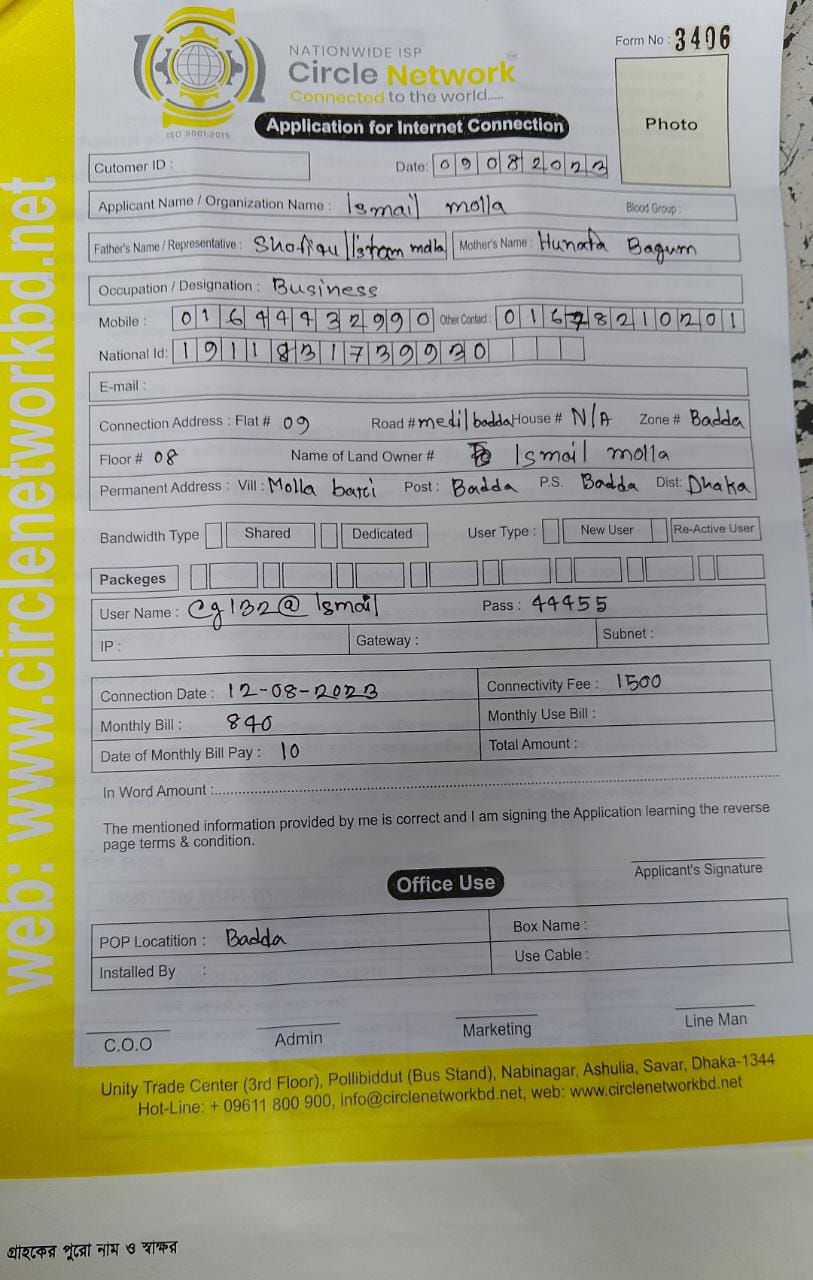 NATIONWIDE ISP
Circle Network
Connected to the world.....
ISO 9001:2015
Form No : 3406
Photo
Application for Internet Connection
Cutomer ID :
Date: 09082023
Applicant Name / Organization Name : Ismail molla Blood Group :
Father's Name / Representative : Shofiqul Islam molla Mother's Name : Hunafa Bagum
Occupation / Designation : Business
Mobile : 01644432990 Other Contact : 01678210201
National Id: 1911831739930
E-mail :
Connection Address : Flat # 09 Road # medilbadda House # N/A Zone # Badda
Floor # 08 Name of Land Owner # Ismail molla
Permanent Address : Vill : Molla bari Post : Badda P.S. Badda Dist: Dhaka
Bandwidth Type Shared Dedicated User Type : New User Re-Active User
Packeges
User Name : Cg132@Ismail Pass : 44455
IP : Gateway : Subnet :
Connection Date : 12-08-2023 Connectivity Fee : 1500
Monthly Bill : 840 Monthly Use Bill :
Date of Monthly Bill Pay : 10 Total Amount :
In Word Amount :
The mentioned information provided by me is correct and I am signing the Application learning the reverse
page terms & condition.
Applicant's Signature
Office Use
POP Locatition : Badda Box Name :
Installed By : Use Cable :
C.O.O Admin Marketing Line Man
Unity Trade Center (3rd Floor), Pollibiddut (Bus Stand), Nabinagar, Ashulia, Savar, Dhaka-1344
Hot-Line: + 09611 800 900, info@circlenetworkbd.net, web: www.circlenetworkbd.net
web: www.circlenetworkbd.net
গ্রাহকের পুরো নাম ও স্বাক্ষর